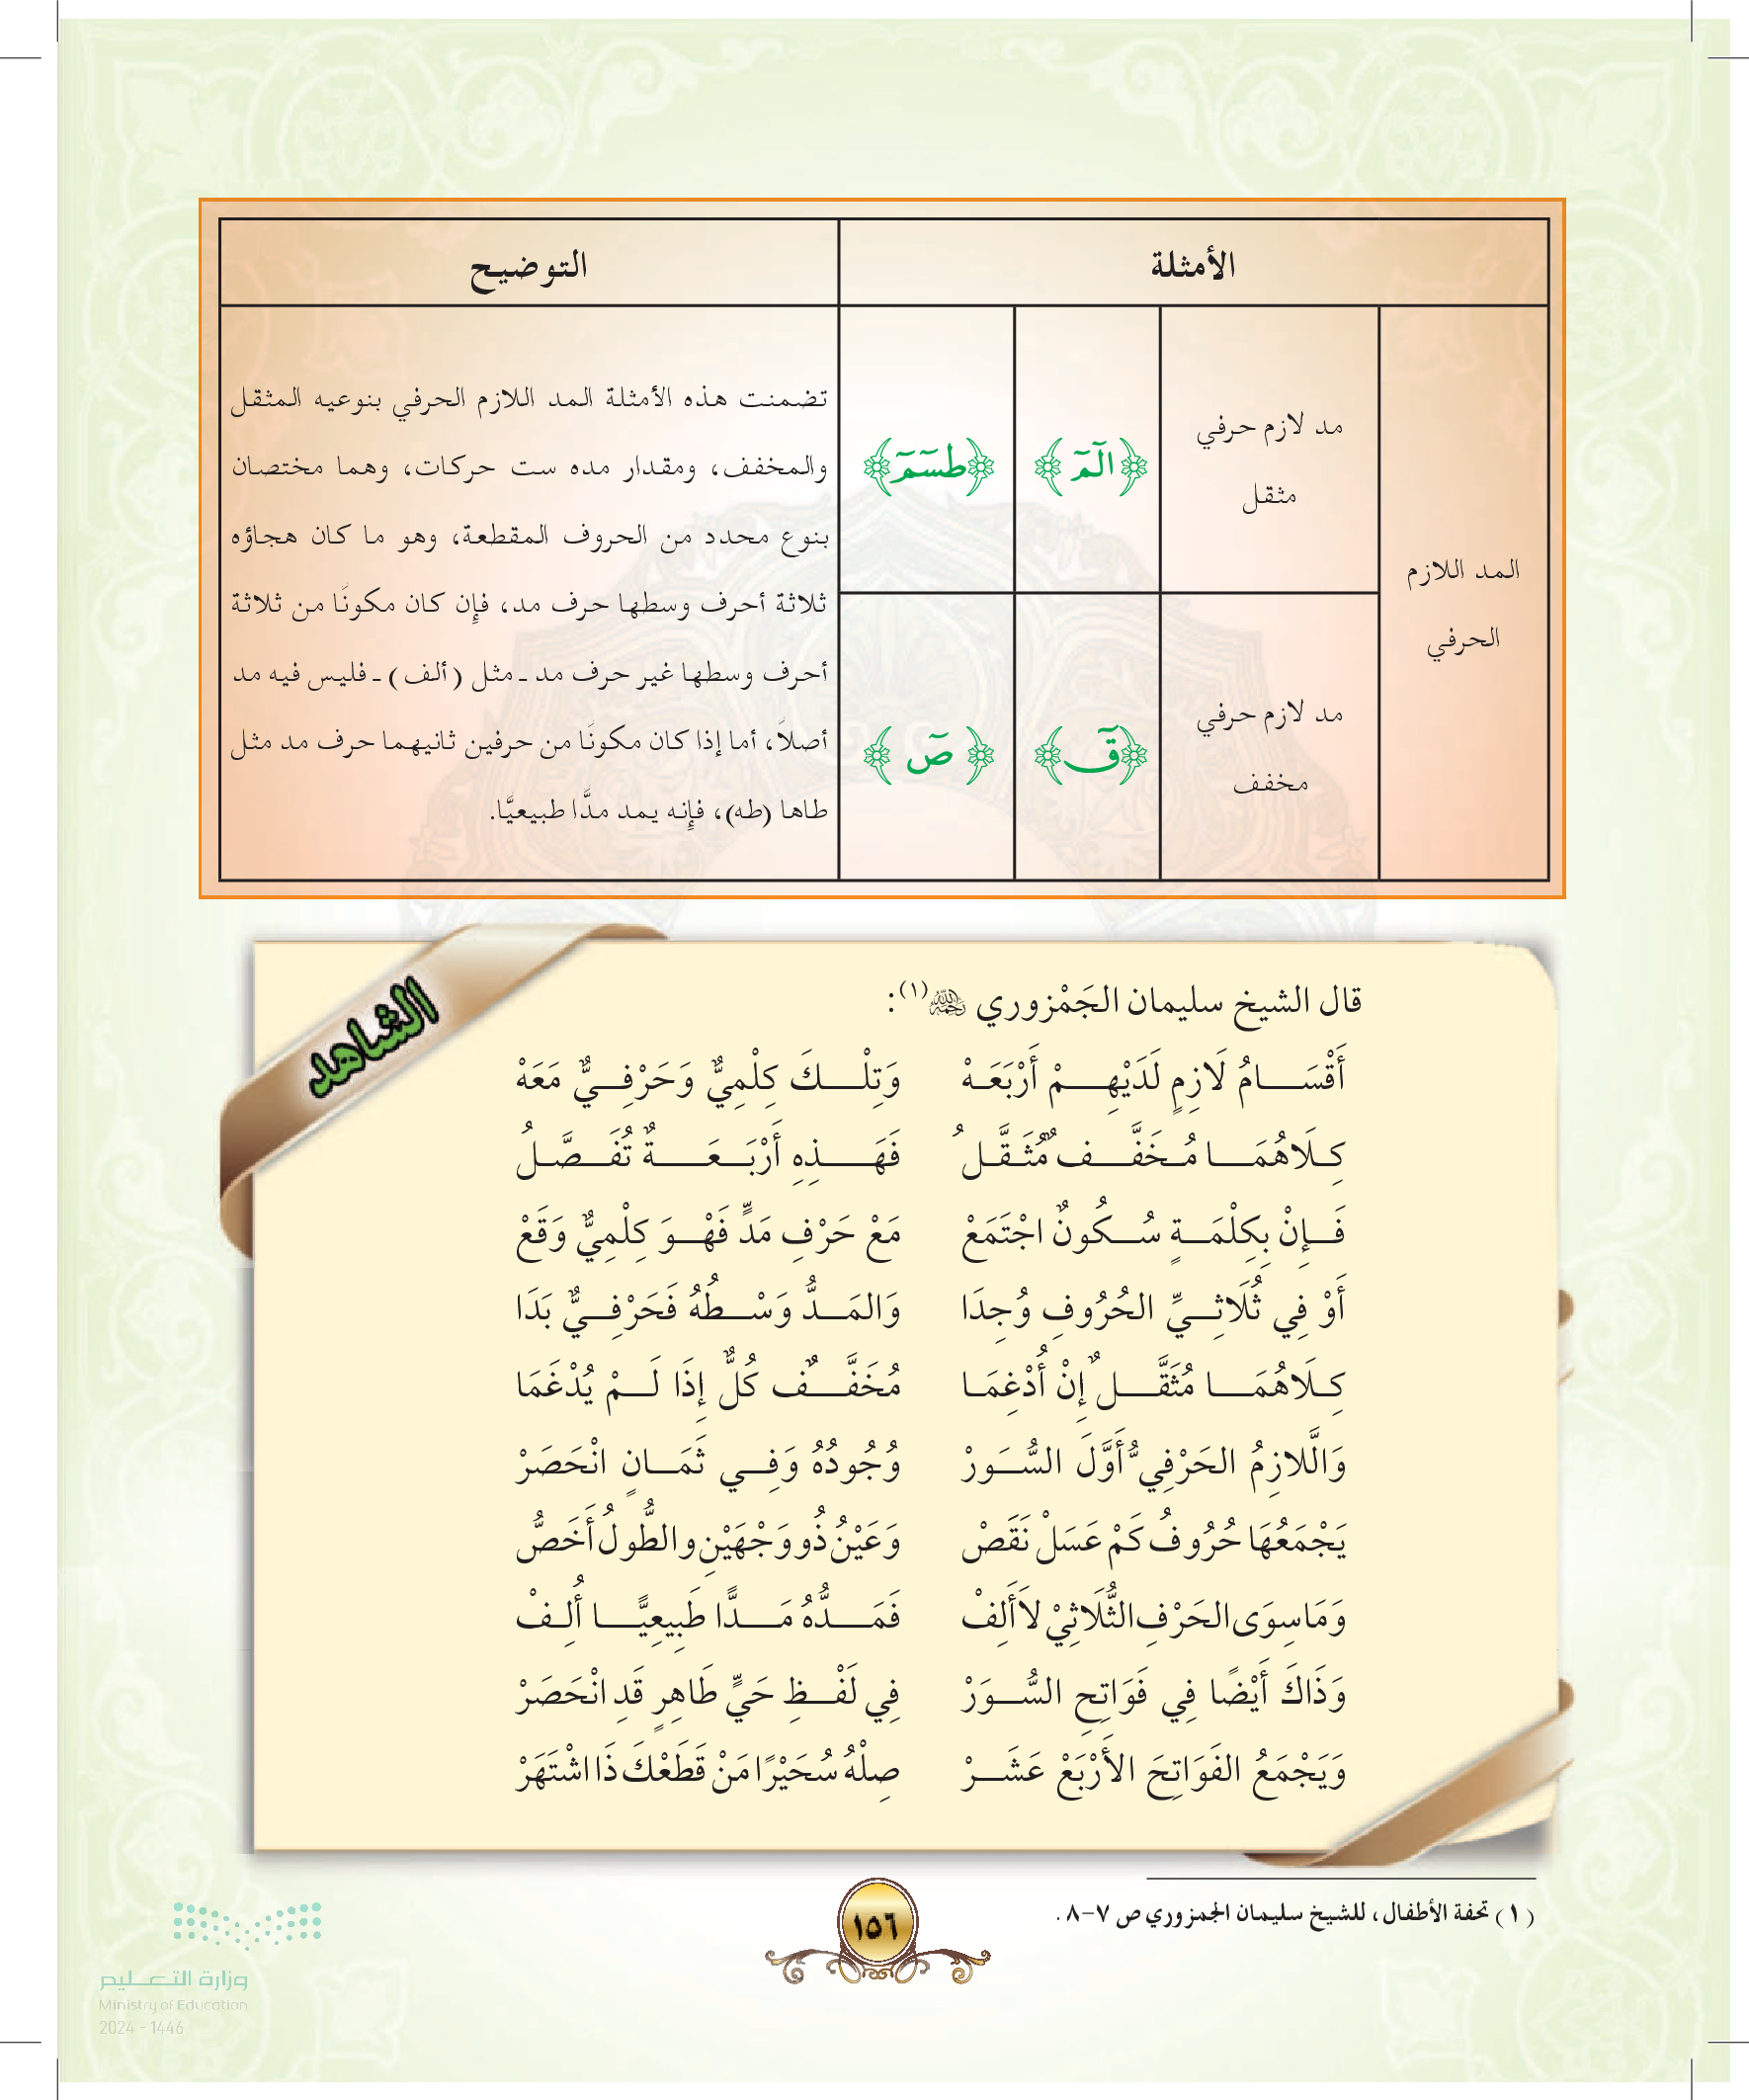 الأمثلة
التوضيح
المد اللازم
الحرفي
مد لازم حرفي
مثقل
﴿الٓمٓ﴾
﴿طسٓمٓ﴾
مد لازم حرفي
مخفف
﴿قٓ﴾
﴿صٓ﴾
تضمنت هذه الأمثلة المد اللازم الحرفي بنوعيه المثقل
والمخفف، ومقدار مده ست حركات، وهما مختصان
بنوع محدد من الحروف المقطعة، وهو ما كان هجاؤه
ثلاثة أحرف وسطها حرف مد، فإن كان مكونًا من ثلاثة
أحرف وسطها غير حرف مد ـ مثل (ألف) ـ فليس فيه مد
أصلاً، أما إذا كان مكونًا من حرفين ثانيهما حرف مد مثل
طاها (طه)، فإنه يمد مدًّا طبيعيًّا.
الشاهد
قال الشيخ سليمان الجَمْزوري رحمه الله(١):
أَقْسَامُ لَازِمٍ لَدَيْهِمْ أَرْبَعَهْ وَتِلْكَ كِلْمِيٌّ وَحَرْفِيٌّ مَعَهْ
كِلَاهُمَا مُخَفَّفٌ مُثَقَّلُ فَهَذِهِ أَرْبَعَةٌ تُفَصَّلُ
فَإِنْ بِكِلْمَةٍ سُكُونٌ اجْتَمَعْ مَعْ حَرْفِ مَدٍّ فَهْوَ كِلْمِيٌّ وَقَعْ
أَوْ فِي ثُلَاثِيِّ الحُرُوفِ وُجِدَا وَالمَدُّ وَسْطُهُ فَحَرْفِيٌّ بَدَا
كِلَاهُمَا مُثَقَّلٌ إِنْ أُدْغِمَا مُخَفَّفٌ كُلٌّ إِذَا لَمْ يُدْغَمَا
وَالَّلازِمُ الحَرْفِيُّ أَوَّلَ السُّوَرْ وُجُودُهُ وَفِي ثَمَانٍ انْحَصَرْ
يَجْمَعُهَا حُرُوفُ كَمْ عَسَلْ نَقَصْ وَعَيْنُ ذُو وَجْهَيْنِ والطُّولُ أَخَصُّ
وَمَا سِوَى الحَرْفِ الثُّلَاثِيْ لاَ أَلِفْ فَمَدُّهُ مَدًّا طَبِيعِيًّا أُلِفْ
وَذَاكَ أَيْضًا فِي فَوَاتِحِ السُّوَرْ فِي لَفْظِ حَيٍّ طَاهِرٍ قَدِ انْحَصَرْ
وَيَجْمَعُ الفَوَاتِحَ الأَرْبَعْ عَشَرْ صِلْهُ سُحَيْرًا مَنْ قَطَعْكَ ذَا اشْتَهَرْ
(١) تحفة الأطفال، للشيخ سليمان الجمزوري ص ٧-٨.
١٥٦
وزارة التعليم
Ministry of Education
2024 - 1446